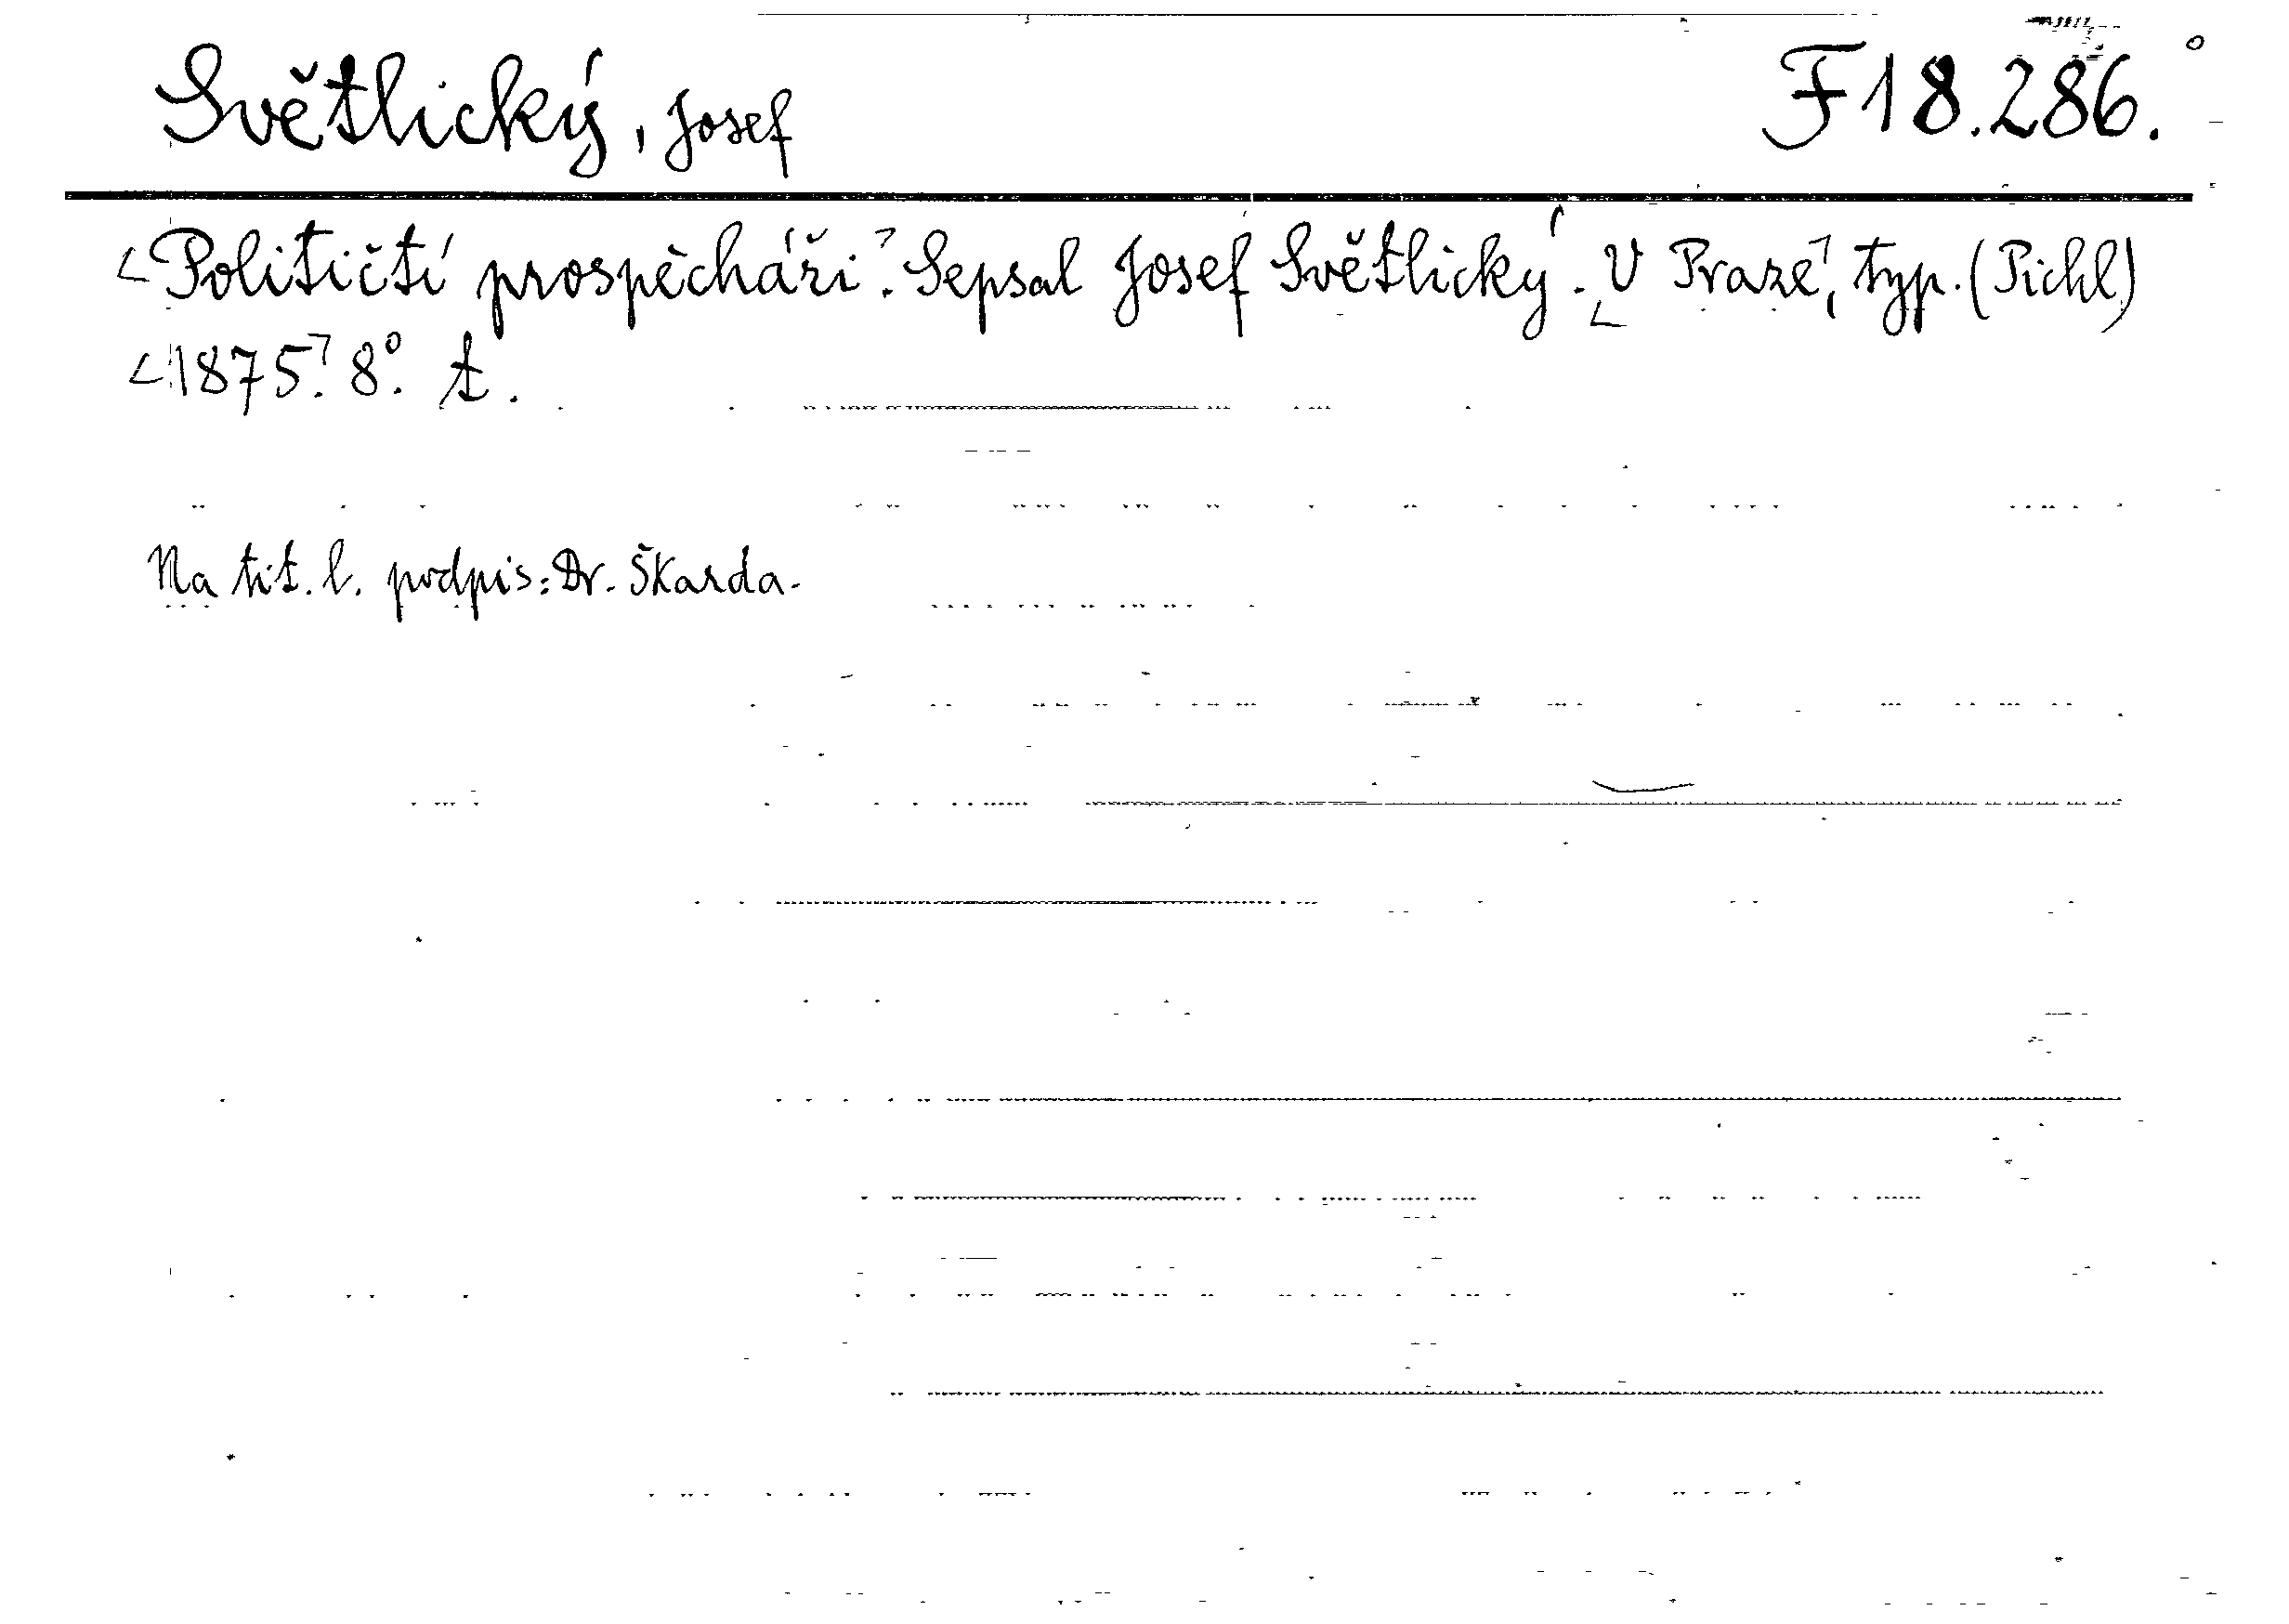 Světlický, Josef F 18.286.
Političtí prospěcháři. Sepsal Josef Světlický. V Praze, typ. (Pichl)
1875. 8°. t.
Na tit. l. podpis: Dr. Škarda.